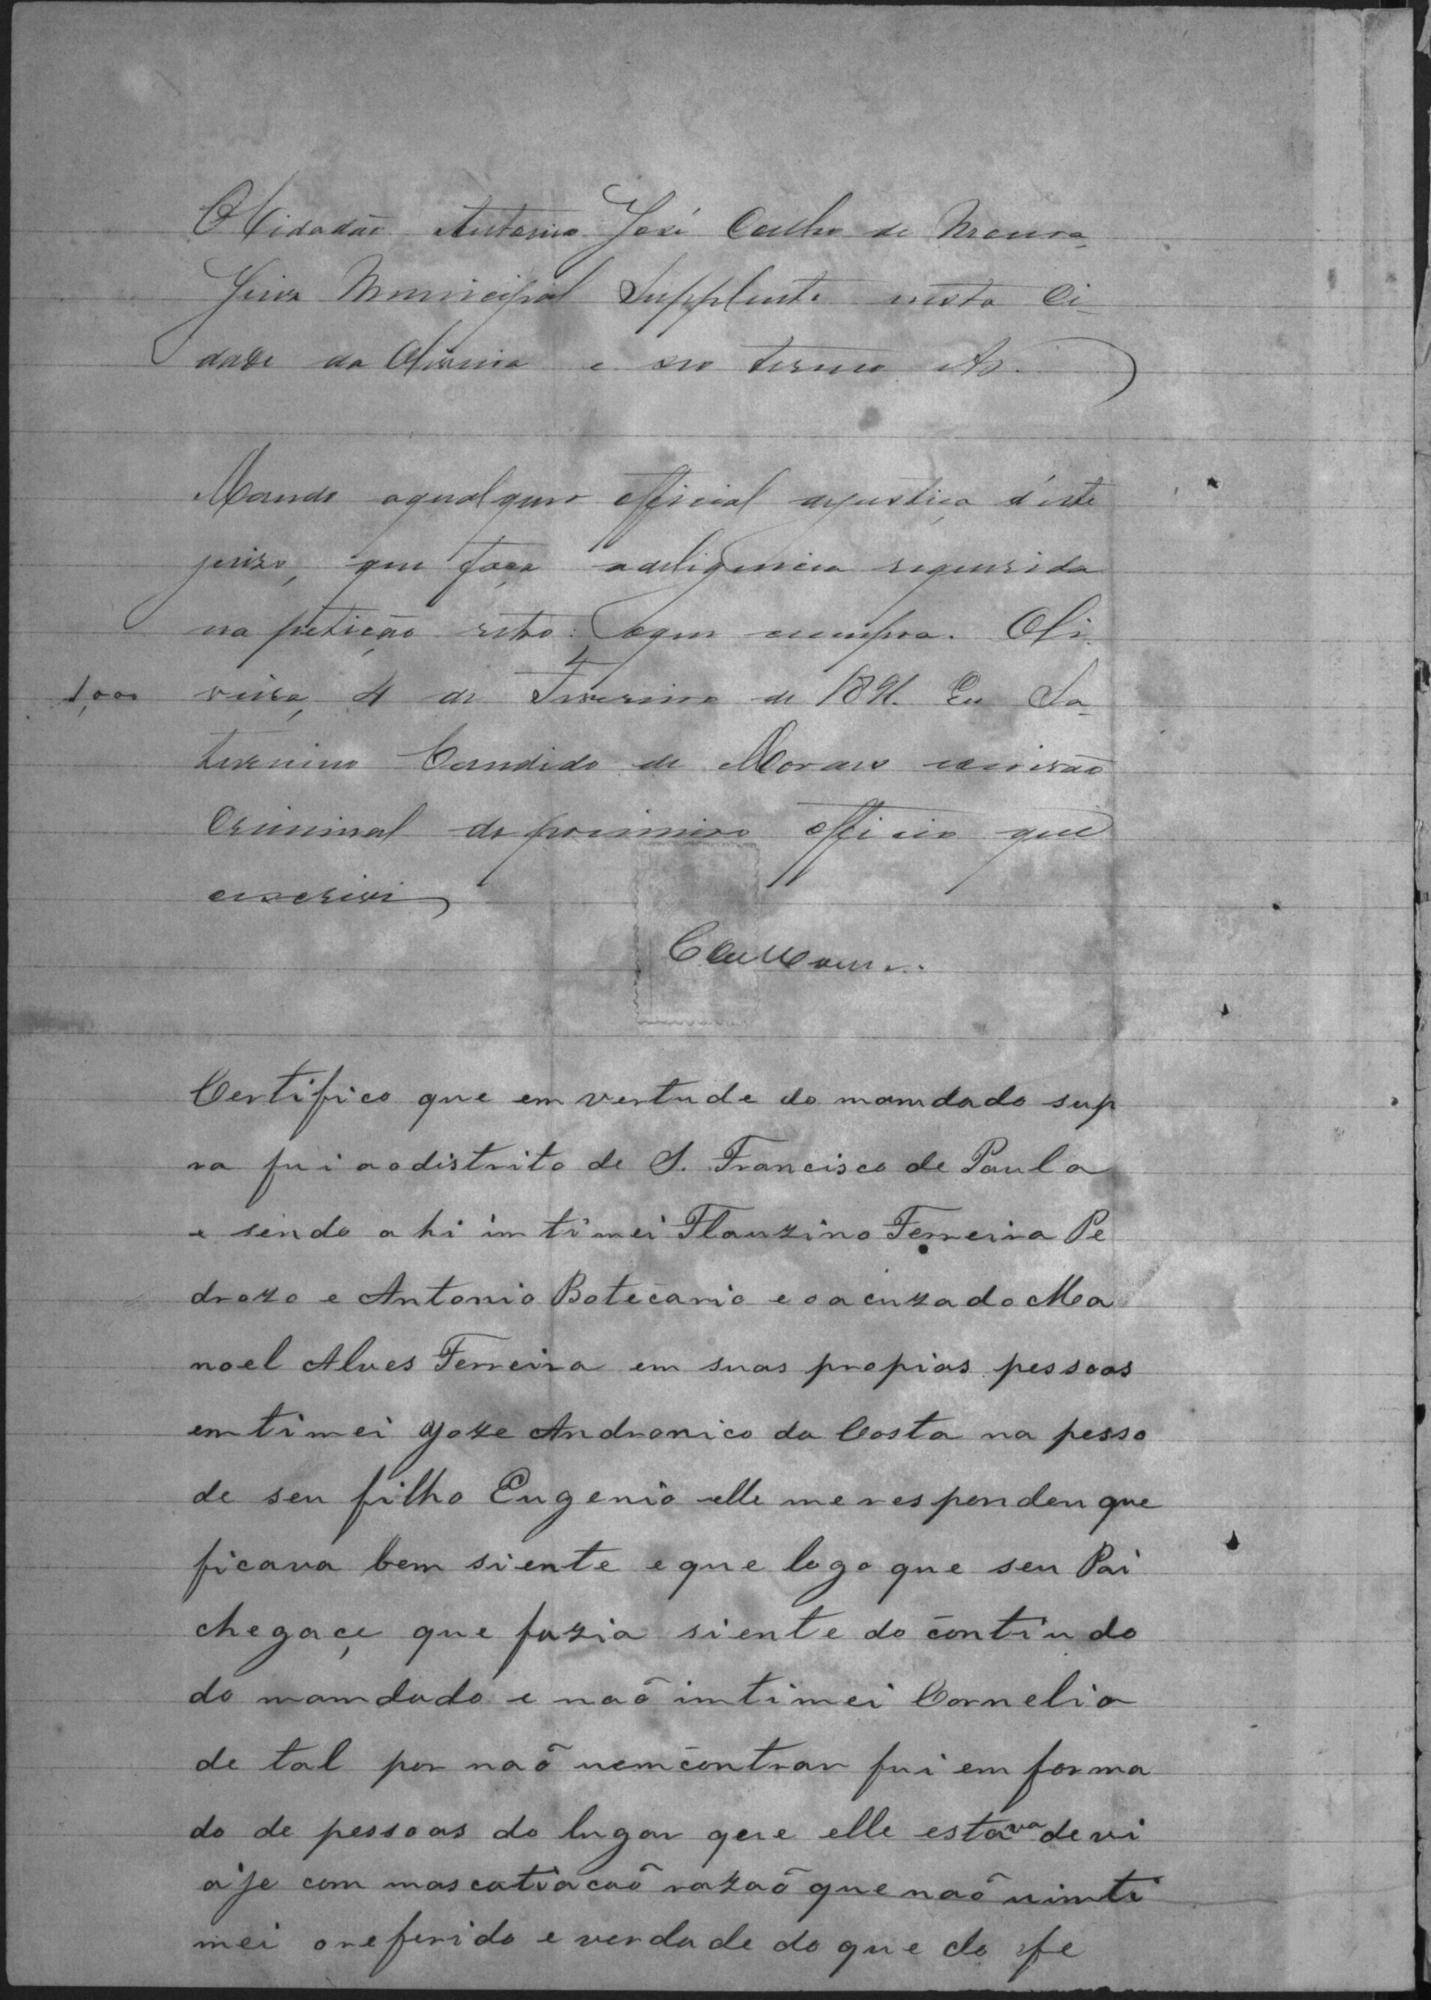 O Cidadão Antonio José Coelho de Moura
Juiz Municipal Supplente nesta Ci-
dade da Oliveira e seo termo &.
Mando aqualquer official dejustiça d'este
juizo, que faça adeligencia requerida
na petição retro: oque cumpra. Oli-
1,000 veira, 4 de Fevereiro de 1891. Eu Sa-
turnino Candido de Moraes escrivão
Criminal do primeiro officio que
escrevi
Certifico que em vertude do mamdado sup
ra fui aodistrito de S. Francisco de Paula
e sendo ahi imtimei Flauzino Ferreira Pe
drozo e Antonio Botecario eoacuzado Ma
noel Alves Ferreira em suas propias pessoas
emtimei Joze Andronico da Costa na pesso
de seu filho Eugenio elle merespondeu que
ficava bem siente eque logo que seu Pai
chegaçe que fazia siente do contiudo
do mamdado e naõ imtimei Cornelio
de tal por naõ uemcontrar fui emforma
do de pessoas do lugar que elle estava devi
aje com mascatiacaõ razaõ que naõ uimti
mei oreferido e verdade do que do fe